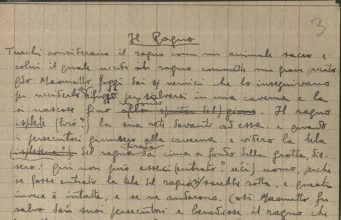 3
Il Ragno
Turchi considerano il ragno come un animale sacro e
colui il quale uccide un ragno commette un grave
Maometto fuggì dai nemici che lo inseguivano
per ucciderlo per salvarsi in una caverna e la
si nascose fino Il ragno
la sua rete davanti ad essa, e quando
i persecutori giunsero alla caverna e videro la tela
del ragno da cima a fondo della grotta, dis-
sero: Qui non può esserci uomo, perché
se fosse entrato la tela del ragno sarebbe rotta, e questa
invece è intatta, e se ne andarono. Così Maometto fu
salvo dai suoi persecutori e benedisse il ragno che